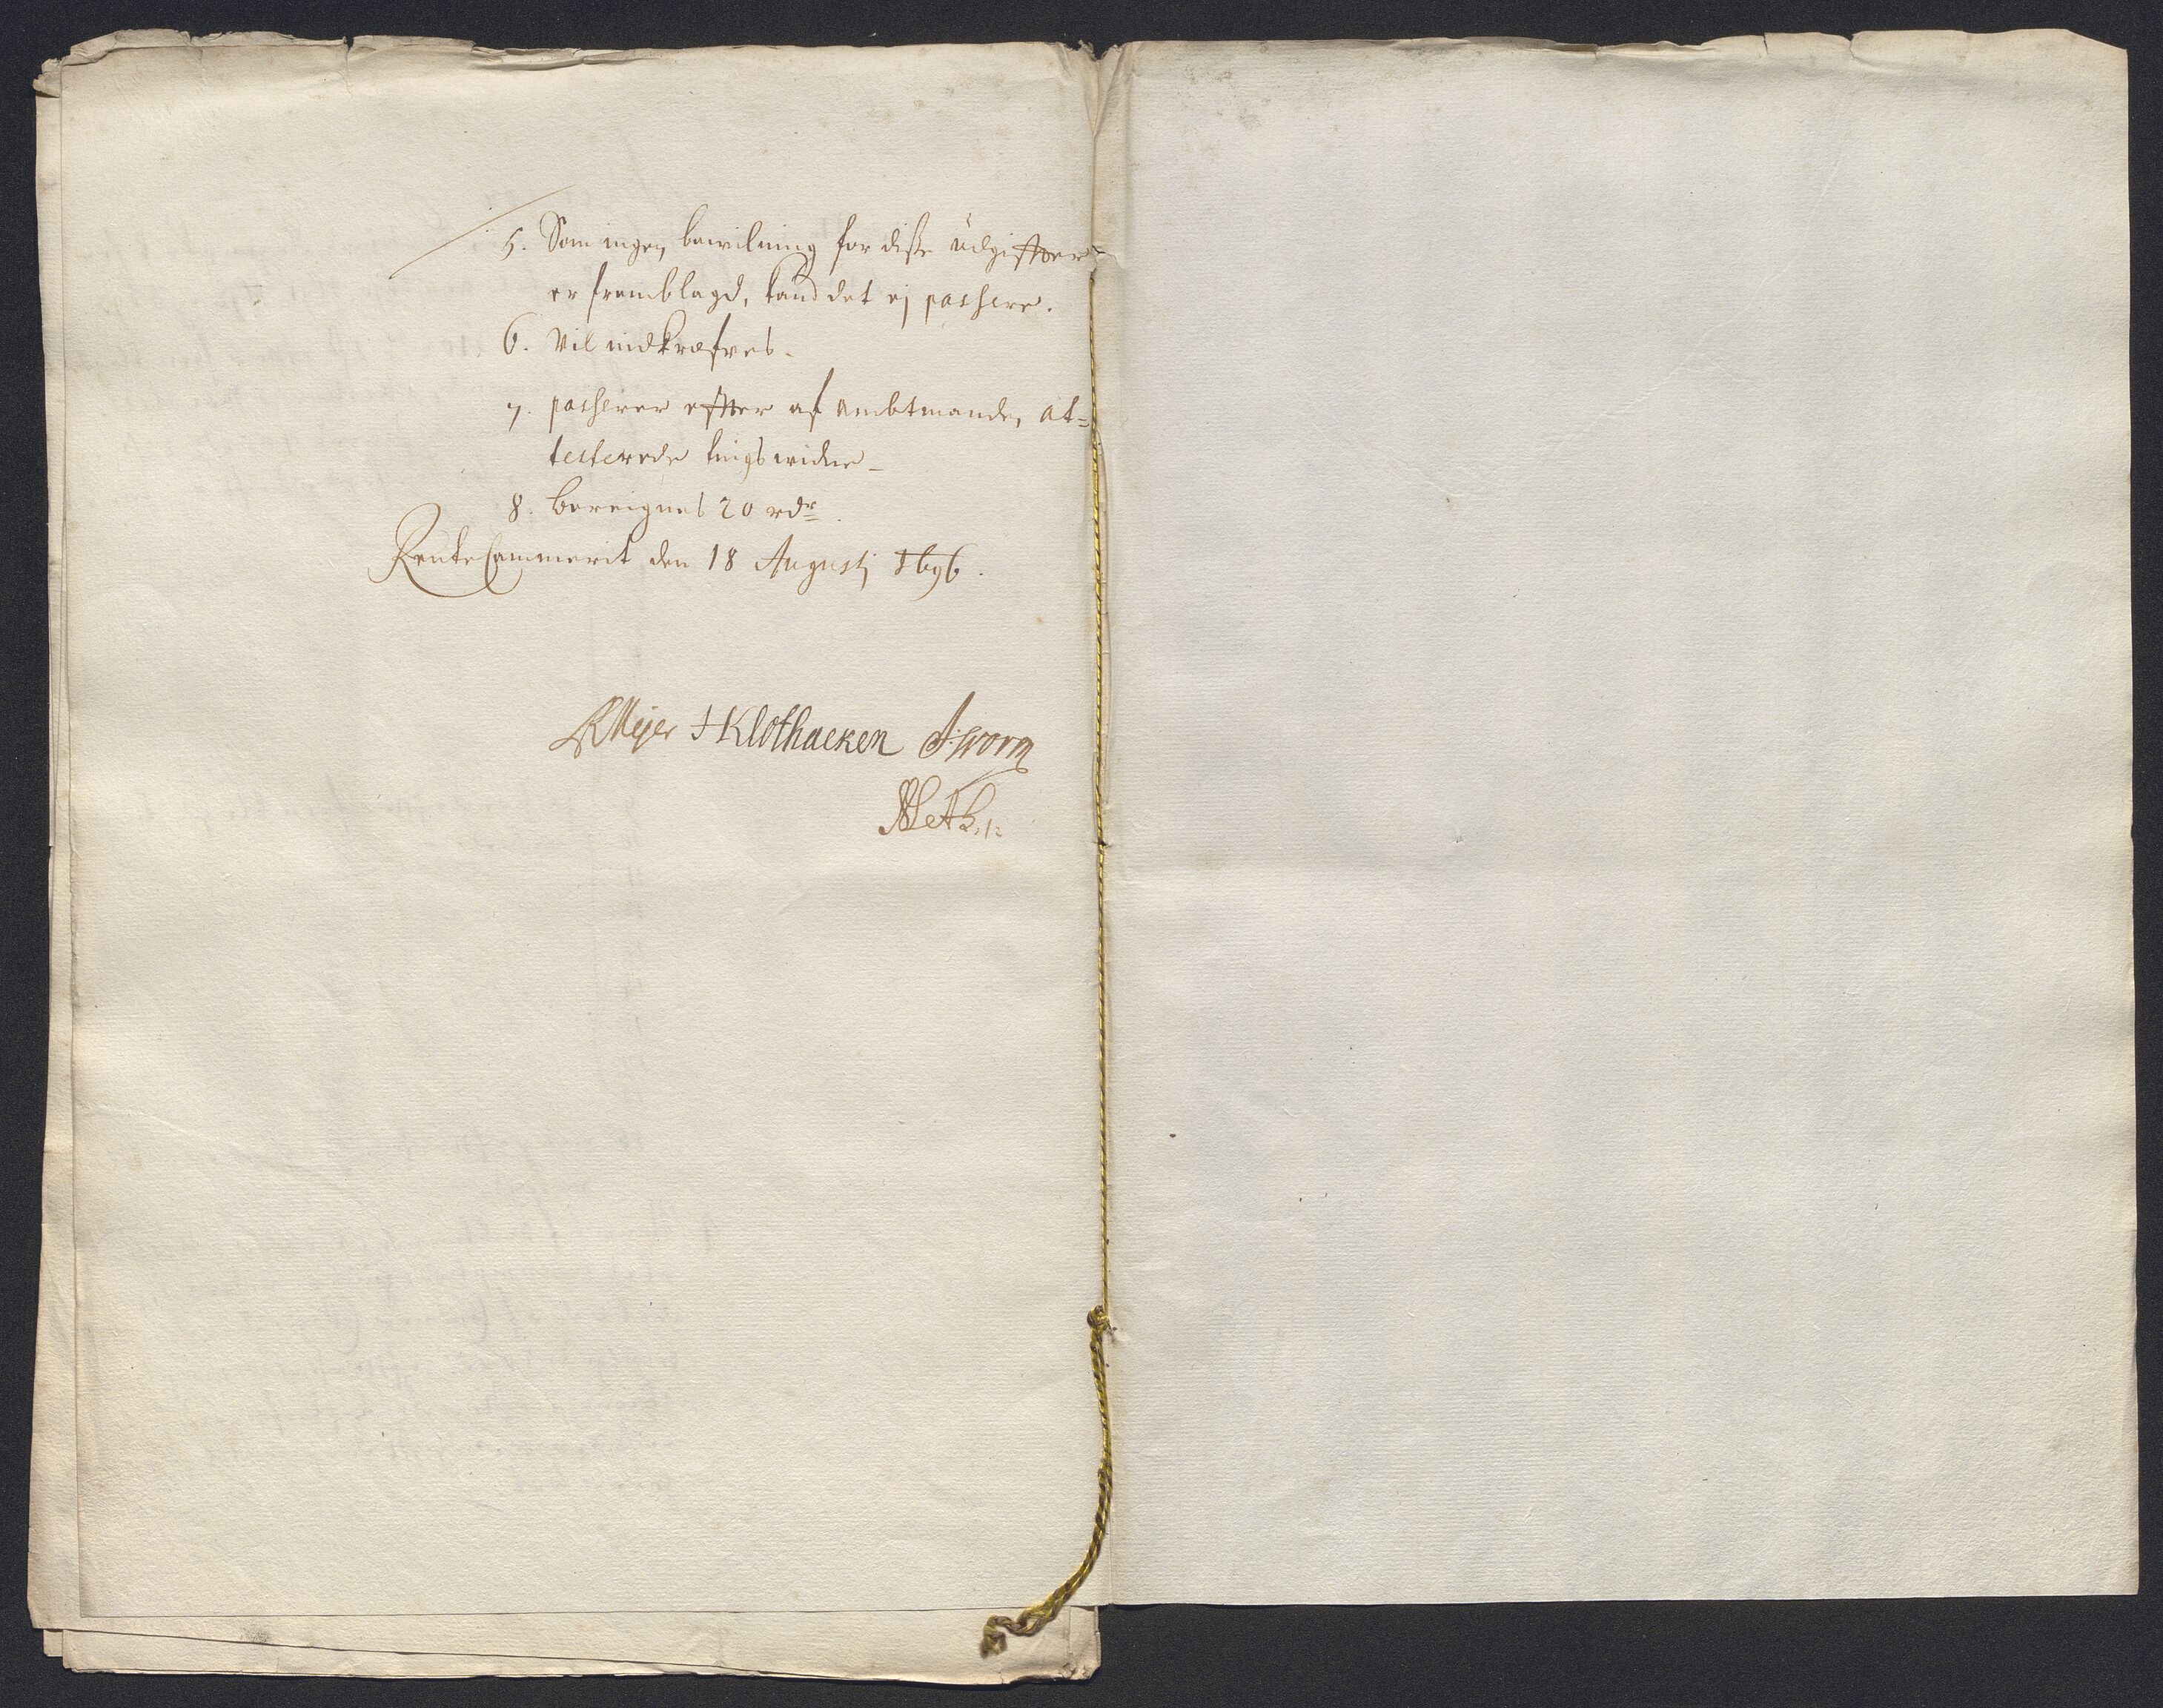 5. Som ingen bewilning for disse udgiffter
er fremblagd, kand det ej passere.
6. Vil indkræfves.
7. passerer effter af Ambtmanden at=
testerede tingswidne
8. bereignes 20 rdr
RenteCammerit den 18 Augustj 1696.
Meyer H Klothacken Worm